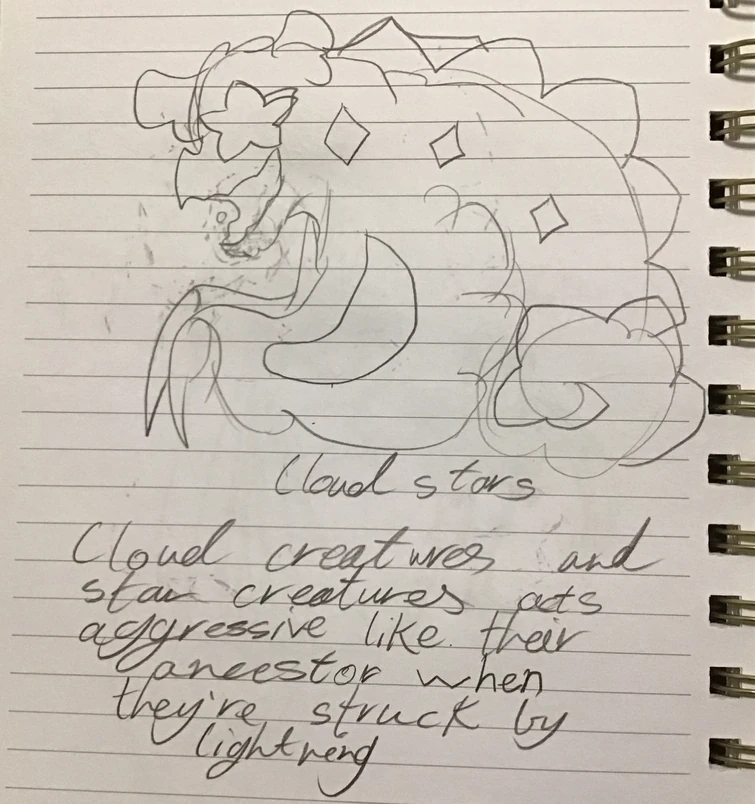 Cloud stars
Cloud creatures and
star creatures acts
aggressive like their
ancestor when
they're struck by
lightning